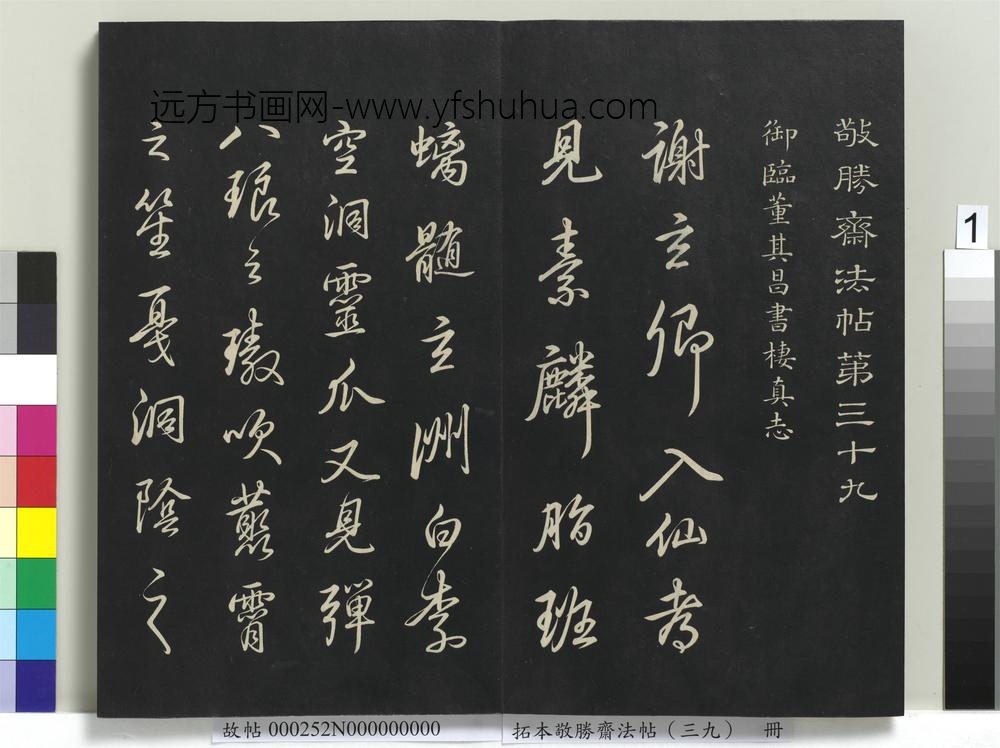 敬勝齋法帖第三十九
御臨董其昌書棲真志
謝立卿入仙考
見素麟脂班
螭髓玄洲白李
空洞靈瓜又見彈
八琅之璈吹
之笙戛洞陰之
远方书画网-www.yfshuhua.com
1
故帖 000252N000000000
拓本敬勝齋法帖（三九） 冊